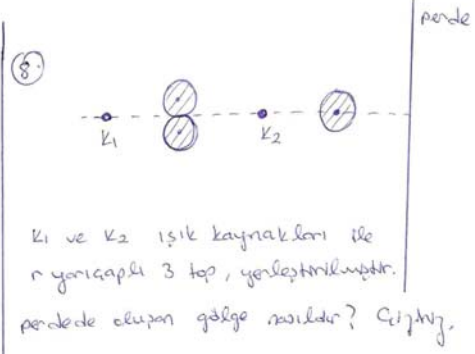 perde
8.
K1 K2
K1 ve K2 ışık kaynakları ile
r yarıçaplı 3 top, yerleştirilmiştir.
perdede oluşan gölge nasıldır? Çiziniz.